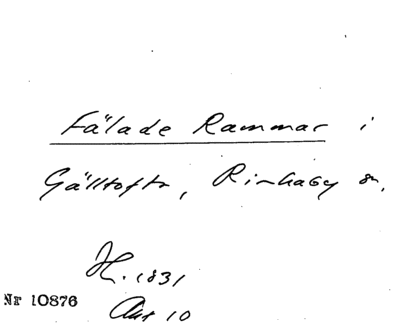 Fälade Rammar i
Gälltofta, Rinkaby sn.
H. 1831
Nr 10876
Aut 10